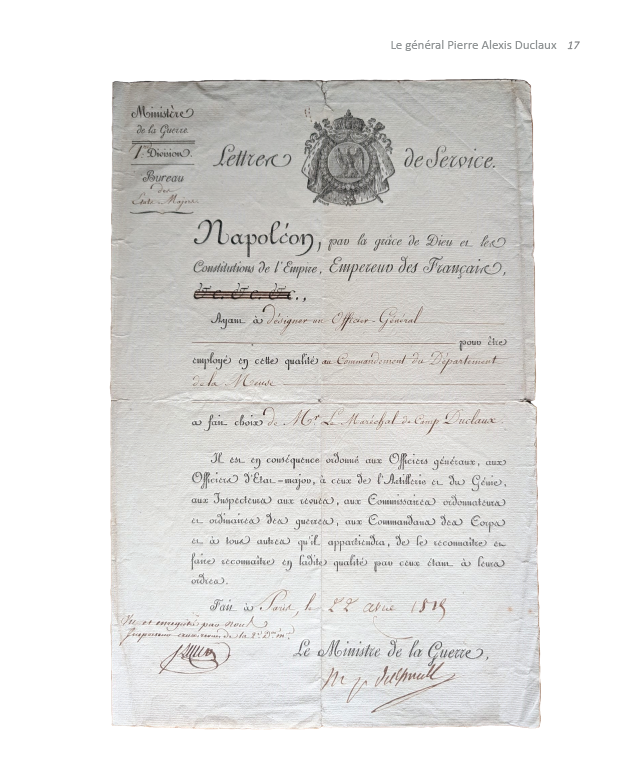 Le général Pierre Alexis Duclaux 17
Ministère
de la Guerre
1re Division.
Bureau
des
États-Majors
Lettres de Service.
Napoléon, par la grâce de Dieu et les
Constitutions de l'Empire, Empereur des Français,
&c. &c. &c.,
Ayant à désigner un Officier-Général
pour être
employé en cette qualité au Commandement du Département
de la Meuse
a fait choix de Mr Le Maréchal de Camp Duclaux.
Il est en conséquence ordonné aux Officiers généraux, aux
Officiers d'État-major, à ceux de l'Artillerie et du Génie,
aux Inspecteurs aux revues, aux Commissaires ordonnateurs
et ordinaires des guerres, aux Commandans des Corps
et à tous autres qu'il appartiendra, de le reconnaître et
faire reconnaître en ladite qualité par ceux étant à leurs
ordres.
Fait à Paris, le 22 avril 1815
Vu et enregistré par nous
Inspecteur aux revues de la 2e Don mre
Le Ministre de la Guerre,